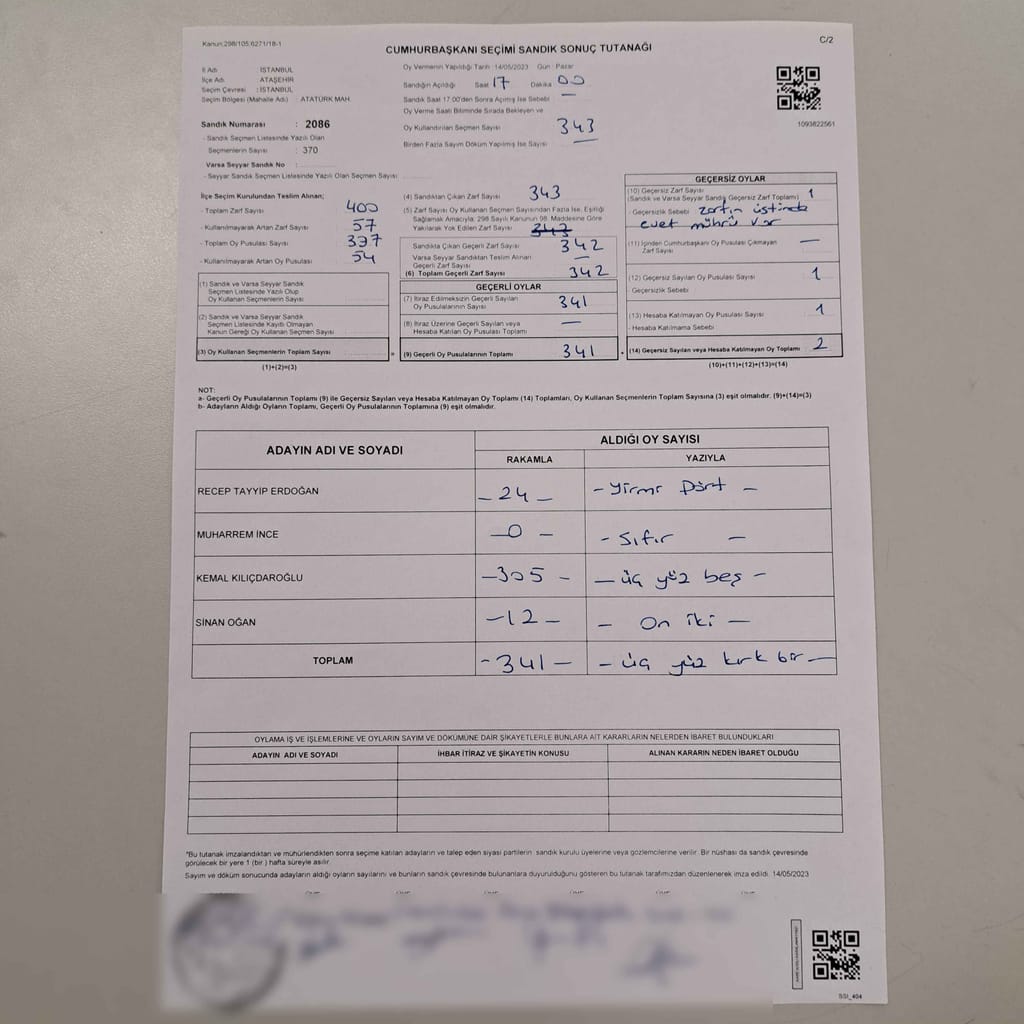 Kanun:298/105;6271/18-1
C/2
CUMHURBAŞKANI SEÇİMİ SANDIK SONUÇ TUTANAĞI
İl Adı : İSTANBUL
İlçe Adı : ATAŞEHİR
Seçim Çevresi : İSTANBUL
Seçim Bölgesi (Mahalle Adı) : ATATÜRK MAH
Sandık Numarası : 2086
- Sandık Seçmen Listesinde Yazılı Olan
Seçmenlerin Sayısı : 370
Varsa Seyyar Sandık No :
- Seyyar Sandık Seçmen Listesinde Yazılı Olan Seçmen Sayısı :
Oy Vermenin Yapıldığı Tarih : 14/05/2023 Gün : Pazar
Sandığın Açıldığı Saat 17 Dakika 00
Sandık Saat 17.00'den Sonra Açılmış İse Sebebi —
Oy Verme Saati Bitiminde Sırada Bekleyen ve
Oy Kullandırılan Seçmen Sayısı 343
Birden Fazla Sayım Döküm Yapılmış İse Sayısı —
1093822561
İlçe Seçim Kurulundan Teslim Alınan;
- Toplam Zarf Sayısı 400
- Kullanılmayarak Artan Zarf Sayısı 57
- Toplam Oy Pusulası Sayısı 397
- Kullanılmayarak Artan Oy Pusulası 54
(1) Sandık ve Varsa Seyyar Sandık
Seçmen Listesinde Yazılı Olup
Oy Kullanan Seçmenlerin Sayısı
(2) Sandık ve Varsa Seyyar Sandık
Seçmen Listesinde Kayıtlı Olmayan
Kanun Gereği Oy Kullanan Seçmen Sayısı
(3) Oy Kullanan Seçmenlerin Toplam Sayısı
(1)+(2)=(3)
(4) Sandıktan Çıkan Zarf Sayısı 343
(5) Zarf Sayısı Oy Kullanan Seçmen Sayısından Fazla İse, Eşitliği
Sağlamak Amacıyla; 298 Sayılı Kanunun 98. Maddesine Göre
Yakılarak Yok Edilen Zarf Sayısı 343
Sandıkta Çıkan Geçerli Zarf Sayısı 342
Varsa Seyyar Sandıktan Teslim Alınan —
Geçerli Zarf Sayısı
(6) Toplam Geçerli Zarf Sayısı 342
GEÇERLİ OYLAR
(7) İtiraz Edilmeksizin Geçerli Sayılan 341
Oy Pusulalarının Sayısı
(8) İtiraz Üzerine Geçerli Sayılan veya —
Hesaba Katılan Oy Pusulası Toplamı
= (9) Geçerli Oy Pusulalarının Toplamı 341
GEÇERSİZ OYLAR
(10) Geçersiz Zarf Sayısı 1
(Sandık ve Varsa Seyyar Sandığı Geçersiz Zarf Toplamı)
- Geçersizlik Sebebi zarfın üstünde
evet mührü var
(11) İçinden Cumhurbaşkanı Oy Pusulası Çıkmayan —
Zarf Sayısı
(12) Geçersiz Sayılan Oy Pusulası Sayısı 1
- Geçersizlik Sebebi
(13) Hesaba Katılmayan Oy Pusulası Sayısı 1
- Hesaba Katılmama Sebebi
+ (14) Geçersiz Sayılan veya Hesaba Katılmayan Oy Toplamı 2
(10)+(11)+(12)+(13)=(14)
NOT:
a- Geçerli Oy Pusulalarının Toplamı (9) ile Geçersiz Sayılan veya Hesaba Katılmayan Oy Toplamı (14) Toplamları, Oy Kullanan Seçmenlerin Toplam Sayısına (3) eşit olmalıdır. (9)+(14)=(3)
b- Adayların Aldığı Oyların Toplamı, Geçerli Oy Pusulalarının Toplamına (9) eşit olmalıdır.
ADAYIN ADI VE SOYADI
ALDIĞI OY SAYISI
RAKAMLA YAZIYLA
RECEP TAYYİP ERDOĞAN - 24 - - Yirmi Dört -
MUHARREM İNCE - 0 - - Sıfır -
KEMAL KILIÇDAROĞLU - 305 - - üç yüz beş -
SİNAN OĞAN - 12 - - On iki -
TOPLAM - 341 - - üç yüz kırk bir -
OYLAMA İŞ VE İŞLEMLERİNE VE OYLARIN SAYIM VE DÖKÜMÜNE DAİR ŞİKAYETLERLE BUNLARA AİT KARARLARIN NELERDEN İBARET BULUNDUKLARI
ADAYIN ADI VE SOYADI İHBAR İTİRAZ VE ŞİKAYETİN KONUSU ALINAN KARARIN NEDEN İBARET OLDUĞU
"Bu tutanak imzalandıktan ve mühürlendikten sonra seçime katılan adayların ve talep eden siyasi partilerin sandık kurulu üyelerine veya gözlemcilerine verilir. Bir nüshası da sandık çevresinde
görülecek bir yere 1 (bir) hafta süreyle asılır.
Sayım ve döküm sonucunda adayların aldığı oyların sayılarını ve bunların sandık çevresinde bulunanlara duyurulduğunu gösteren bu tutanak tarafımızdan düzenlenerek imza edildi. 14/05/2023
SSI_404